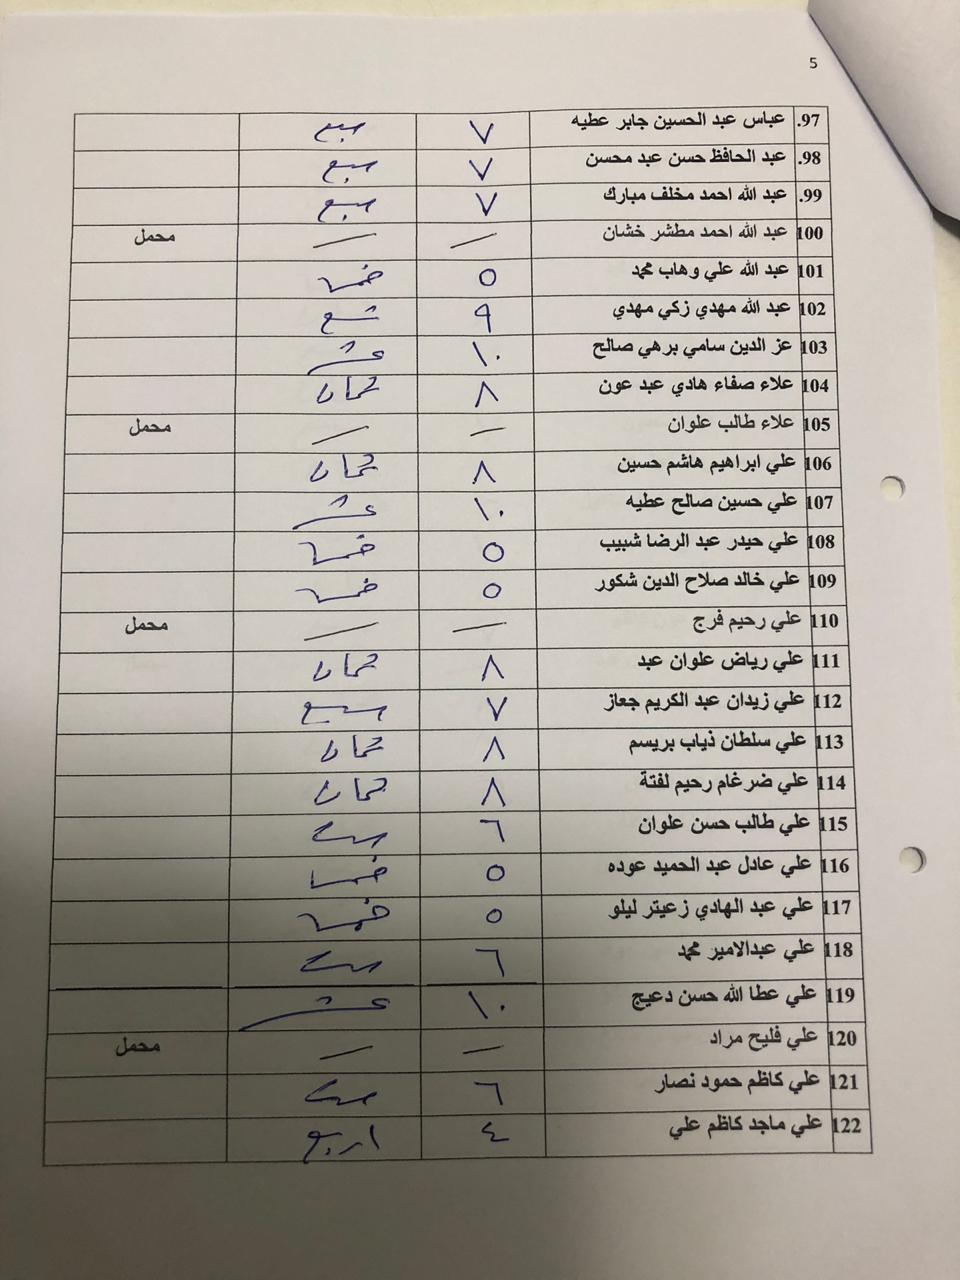 5
.97 عباس عبد الحسين جابر عطيه ٧ سبع
.98 عبد الحافظ حسن عبد محسن ٧ سبع
.99 عبد الله احمد مخلف مبارك ٧ سبع
100 عبد الله احمد مطشر خشان — — محمل
101 عبد الله علي وهاب محمد ٥ خمسة
102 عبد الله مهدي زكي مهدي ٩ تسع
103 عز الدين سامي برهي صالح ١٠ عشر
104 علاء صفاء هادي عبد عون ٨ ثمان
105 علاء طالب علوان — — محمل
106 علي ابراهيم هاشم حسين ٨ ثمان
107 علي حسين صالح عطيه ١٠ عشر
108 علي حيدر عبد الرضا شبيب ٥ خمسة
109 علي خالد صلاح الدين شكور ٥ خمسة
110 علي رحيم فرج — — محمل
111 علي رياض علوان عبد ٨ ثمان
112 علي زيدان عبد الكريم جعاز ٧ سبع
113 علي سلطان ذياب بريسم ٨ ثمان
114 علي ضرغام رحيم لفتة ٨ ثمان
115 علي طالب حسن علوان ٦ ست
116 علي عادل عبد الحميد عوده ٥ خمسة
117 علي عبد الهادي زعيتر ليلو ٥ خمسة
118 علي عبدالامير محمد ٦ ست
119 علي عطا الله حسن دعيج ١٠ عشر
120 علي فليح مراد — — محمل
121 علي كاظم حمود نصار ٦ ست
122 علي ماجد كاظم علي ٤ اربع